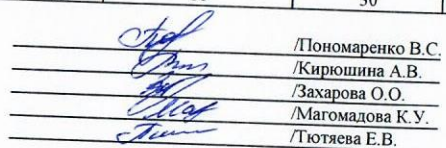 /Пономаренко В.С.
/Кирюшина А.В.
/Захарова О.О.
/Магомадова К.У.
/Тютяева Е.В.